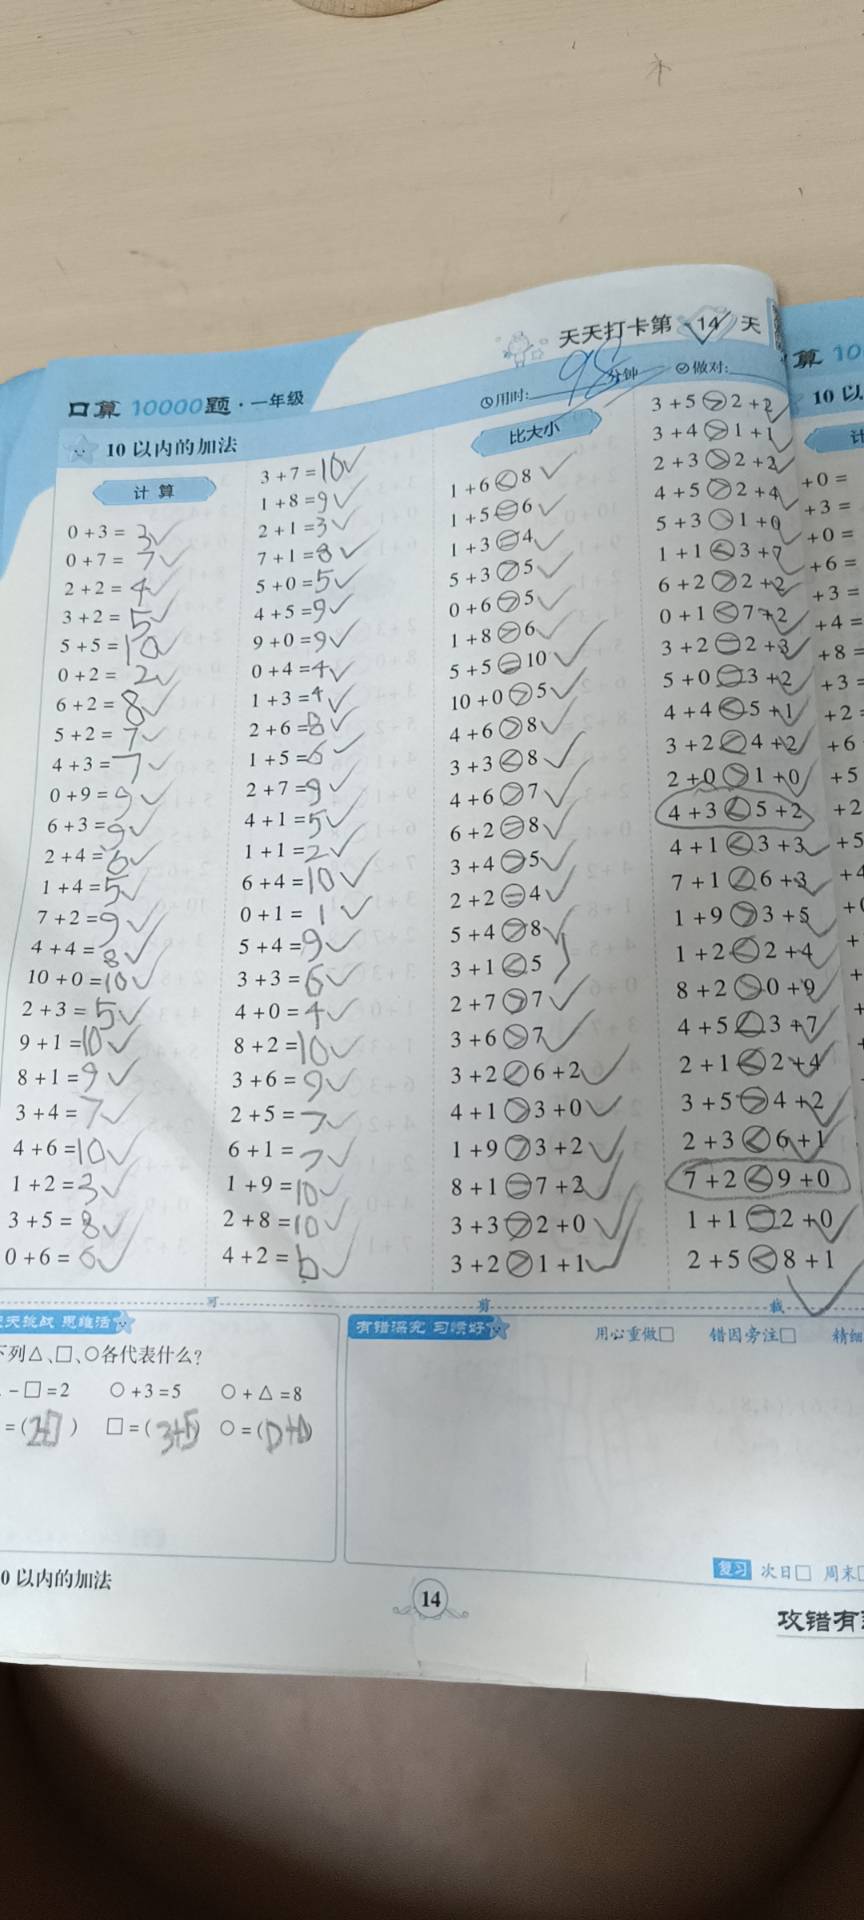 天天打卡第 14 天
口算 10000题·一年级
用时: 98 分钟 做对:
10 以内的加法
计 算
0+3=3
0+7=7
2+2=4
3+2=5
5+5=10
0+2=2
6+2=8
5+2=7
4+3=7
0+9=9
6+3=9
2+4=6
1+4=5
7+2=9
4+4=8
10+0=10
2+3=5
9+1=10
8+1=9
3+4=7
4+6=10
1+2=3
3+5=8
0+6=6
3+7=10
1+8=9
2+1=3
7+1=8
5+0=5
4+5=9
9+0=9
0+4=4
1+3=4
2+6=8
1+5=6
2+7=9
4+1=5
1+1=2
6+4=10
0+1=1
5+4=9
3+3=6
4+0=4
8+2=10
3+6=9
2+5=7
6+1=7
1+9=10
2+8=10
4+2=6
比大小
1+6<8
1+5=6
1+3=4
5+3>5
0+6>5
1+8>6
5+5=10
10+0>5
4+6>8
3+3<8
4+6>7
6+2=8
3+4>5
2+2=4
5+4>8
3+1<5
2+7>7
3+6>7
3+2<6+2
4+1>3+0
1+9>3+2
8+1=7+2
3+3>2+0
3+2>1+1
3+5>2+2
3+4>1+1
2+3>2+2
4+5>2+4
5+3>1+0
1+1<3+7
6+2>2+2
0+1<7+2
3+2=2+3
5+0=3+2
4+4<5+1
3+2<4+2
2+0>1+0
4+3<5+2
4+1<3+3
7+1<6+3
1+9>3+5
1+2<2+4
8+2>0+9
4+5<3+7
2+1<2+4
3+5>4+2
2+3<6+1
7+2<9+0
1+1=2+0
2+5<8+1
算 10
10 以
计
+0=
+3=
+0=
+6=
+3=
+4=
+8=
+3=
+2=
+6
+5
+2
+5
+4
可 剪 裁
天挑战 思维活
下列△、□、○各代表什么?
-□=2 ○+3=5 ○+△=8
=( ) □=( ) ○=( )
有错深究 习惯好
用心重做□ 错因旁注□ 精细
复习 次日□ 周末□
0 以内的加法
14
攻错有